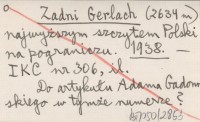 Zadni Gerlach (2634 m)
najwyższym szczytem Polski
na pograniczu. 1938. —
IKC nr 306, il.
Do artykułu Adama Gadom
skiego w tymże numerze?